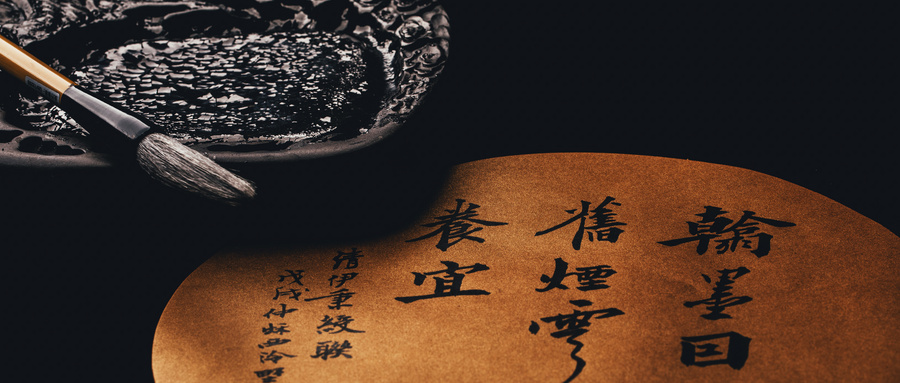 翰墨回
舊煙雲
養宜
清伊秉綬聯
戊戌仲西泠